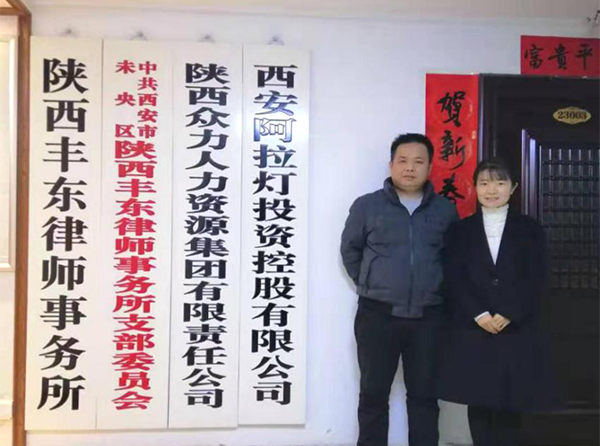 陕西丰东律师事务所
中共西安市
未央区
陕西丰东律师事务所支部委员会
陕西众力人力资源集团有限责任公司
西安阿拉灯投资控股有限公司
贺新春
富貴平
23003